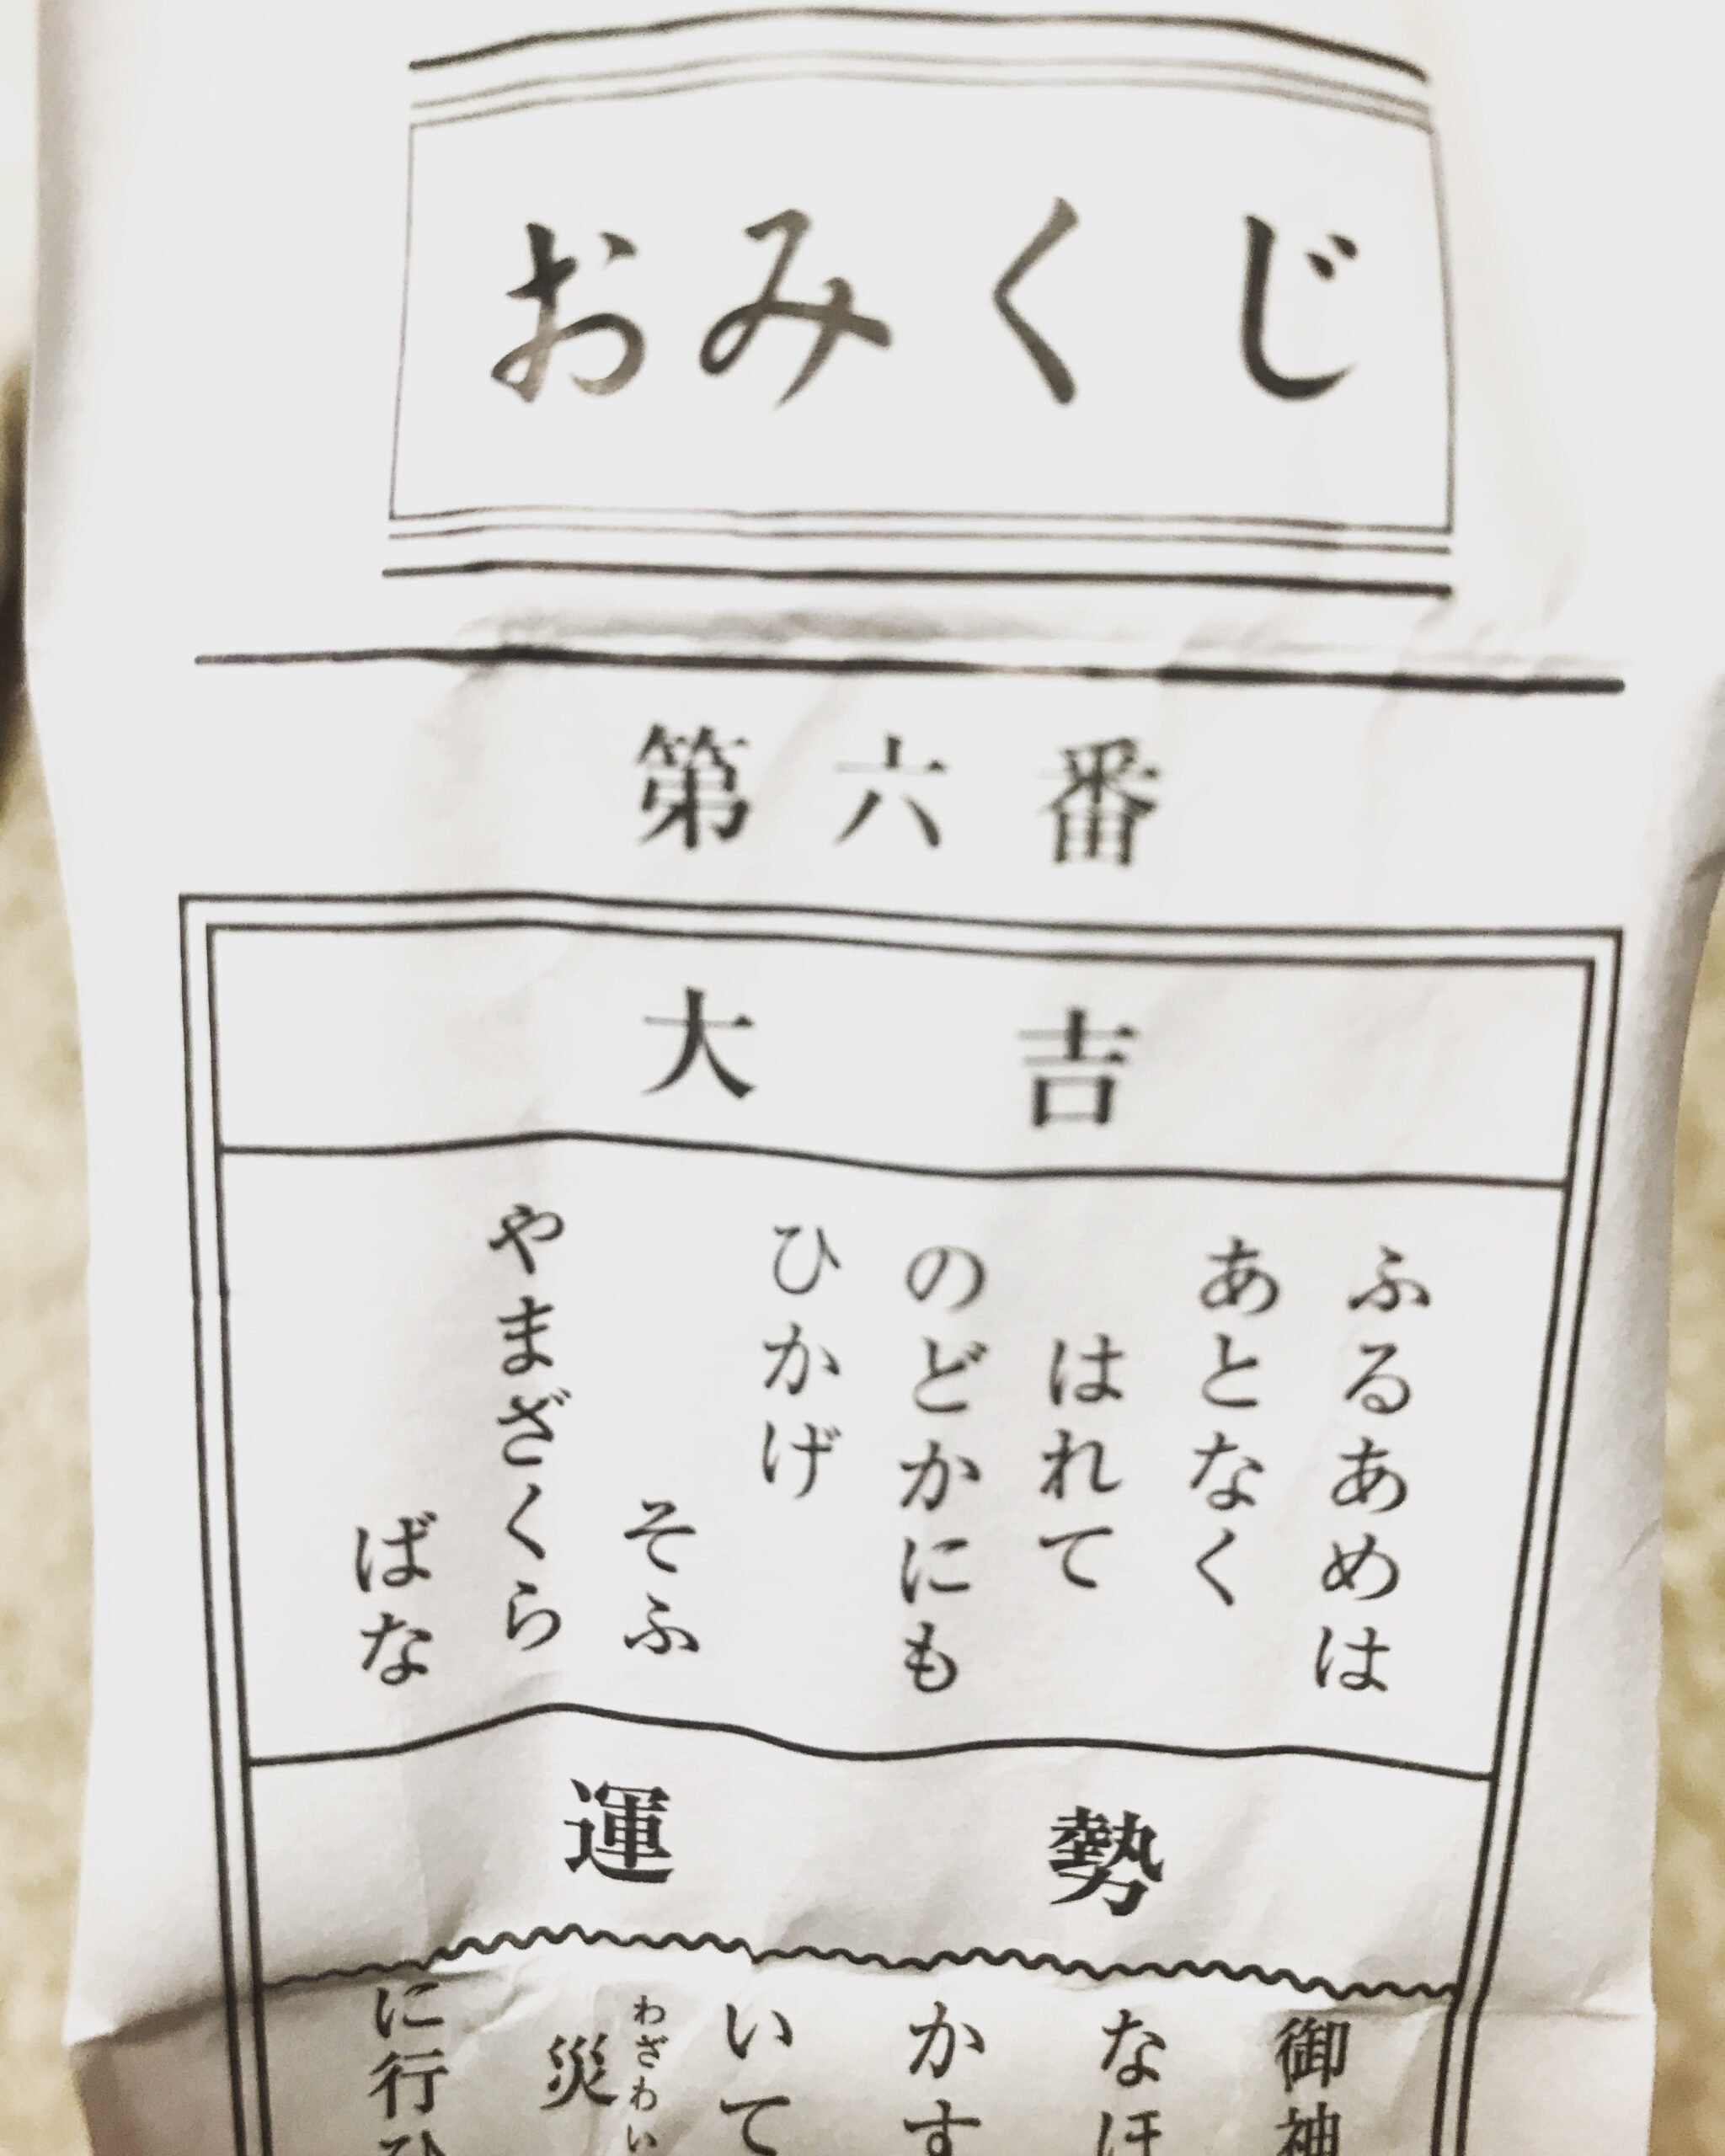 おみくじ
第六番
大吉
ふるあめは
あとなく
はれて
のどかにも
ひかげ
そふ
やまざくら
ばな
運勢
御神
なほ
かす
いて
わざわい
災
に行